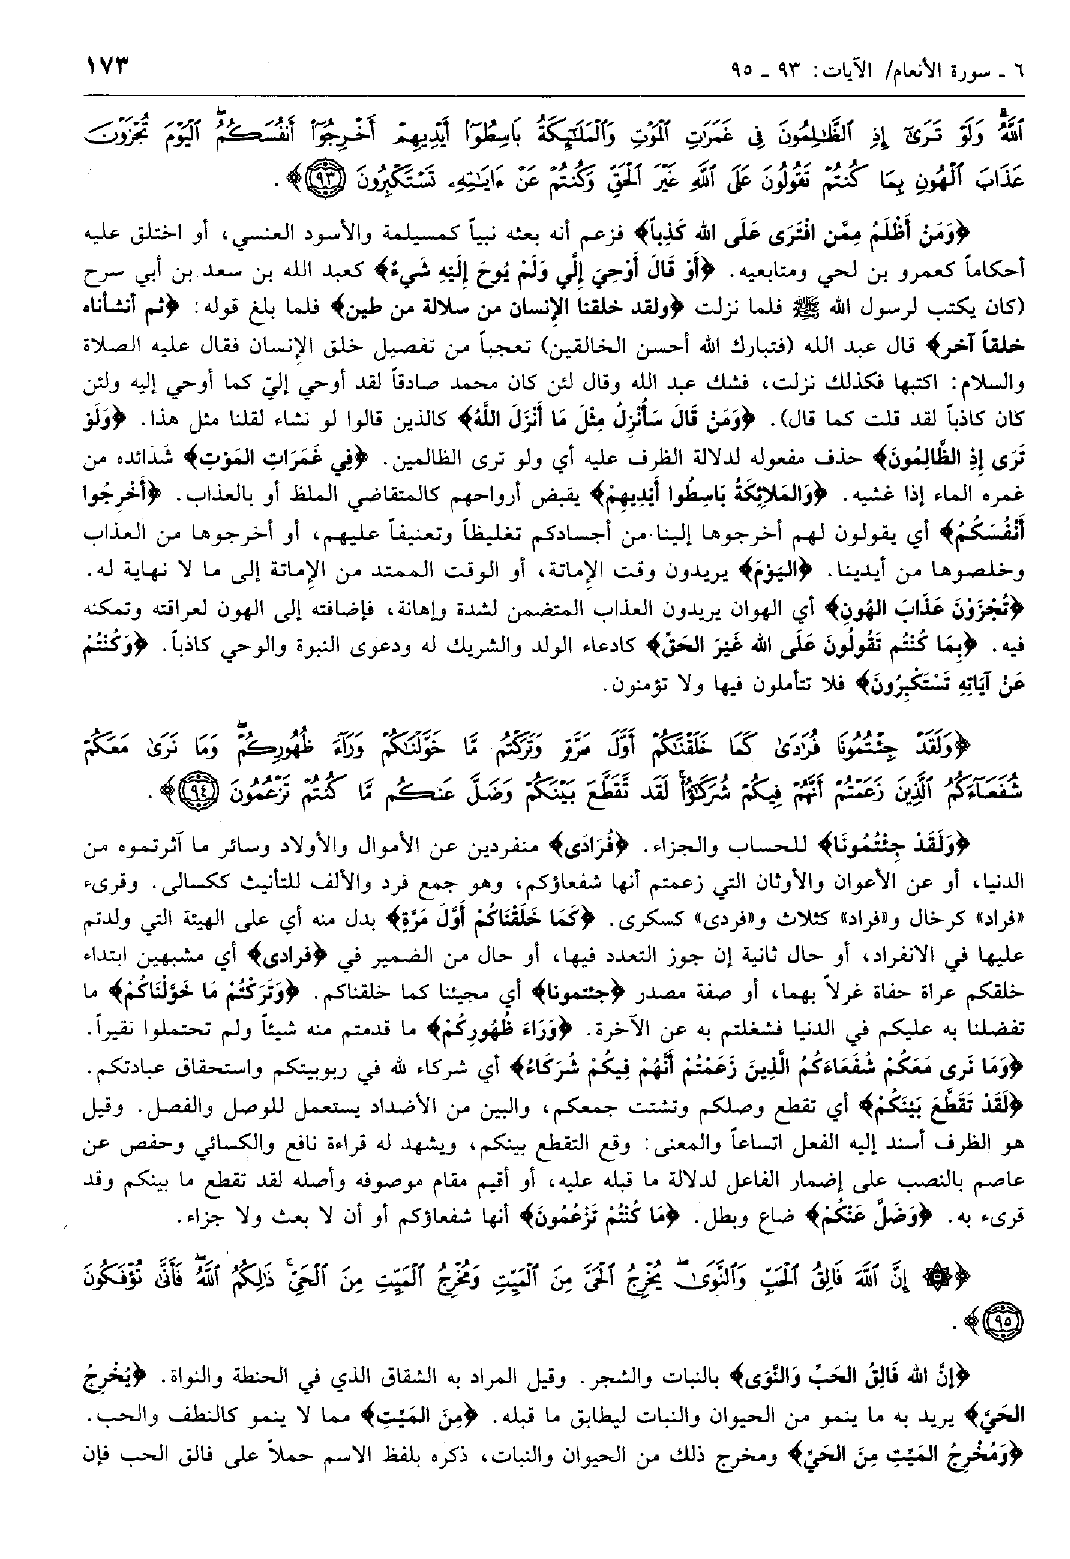 ٦ ـ سورة الأنعام/ الآيات: ٩٣ ـ ٩٥
١٧٣
ٱللَّهُ وَلَوْ تَرَىٰٓ إِذِ ٱلظَّٰلِمُونَ فِى غَمَرَٰتِ ٱلْمَوْتِ وَٱلْمَلَٰٓئِكَةُ بَاسِطُوٓا۟ أَيْدِيهِمْ أَخْرِجُوٓا۟ أَنفُسَكُمُ ۖ ٱلْيَوْمَ تُجْزَوْنَ
عَذَابَ ٱلْهُونِ بِمَا كُنتُمْ تَقُولُونَ عَلَى ٱللَّهِ غَيْرَ ٱلْحَقِّ وَكُنتُمْ عَنْ ءَايَٰتِهِۦ تَسْتَكْبِرُونَ ﴿٩٣﴾﴾.
﴿وَمَنْ أَظْلَمُ مِمَّن افْتَرَى عَلَى الله كَذِباً﴾ فزعم أنه بعثه نبياً كمسيلمة والأسود العنسي، أو اختلق عليه
أحكاماً كعمرو بن لحي ومتابعيه. ﴿أَوْ قَالَ أَوْحِيَ إِلَّي وَلَمْ يُوحَ إِلَيْهِ شَيءٌ﴾ كعبد الله بن سعد بن أبي سرح
(كان يكتب لرسول الله ﷺ فلما نزلت ﴿ولقد خلقنا الإنسان من سلالة من طين﴾ فلما بلغ قوله: ﴿ثم أنشأناه
خلقاً آخر﴾ قال عبد الله (فتبارك الله أحسن الخالقين) تعجباً من تفصيل خلق الإنسان فقال عليه الصلاة
والسلام: اكتبها فكذلك نزلت، فشك عبد الله وقال لئن كان محمد صادقاً لقد أوحي إليّ كما أوحي إليه ولئن
كان كاذباً لقد قلت كما قال). ﴿وَمَنْ قَالَ سَأُنْزِلُ مِثْلَ مَا أَنْزَلَ اللَّهُ﴾ كالذين قالوا لو نشاء لقلنا مثل هذا. ﴿وَلَوْ
تَرَى إِذِ الظَّالِمُونَ﴾ حذف مفعوله لدلالة الظرف عليه أي ولو ترى الظالمين. ﴿فِي غَمَرَاتِ المَوْتِ﴾ شدائده من
غمره الماء إذا غشيه. ﴿وَالمَلائِكَةُ بَاسِطُوا أَيْدِيهِمْ﴾ يقبض أرواحهم كالمتقاضي الملظ أو بالعذاب. ﴿أَخْرِجُوا
أَنْفُسَكُمُ﴾ أي يقولون لهم أخرجوها إلينا من أجسادكم تغليظاً وتعنيفاً عليهم، أو أخرجوها من العذاب
وخلصوها من أيدينا. ﴿اليَوْمَ﴾ يريدون وقت الإماتة، أو الوقت الممتد من الإماتة إلى ما لا نهاية له.
﴿تُجْزَوْنَ عَذَابَ الهُونِ﴾ أي الهوان يريدون العذاب المتضمن لشدة وإهانة، فإضافته إلى الهون لعراقته وتمكنه
فيه. ﴿بِمَا كُنْتُم تَقُولُونَ عَلَى الله غَيْرَ الحَقِّ﴾ كادعاء الولد والشريك له ودعوى النبوة والوحي كاذباً. ﴿وَكُنْتُمْ
عَنْ آيَاتِهِ تَسْتَكْبِرُونَ﴾ فلا تتأملون فيها ولا تؤمنون.
﴿وَلَقَدْ جِئْتُمُونَا فُرَٰدَىٰ كَمَا خَلَقْنَٰكُمْ أَوَّلَ مَرَّةٍ وَتَرَكْتُم مَّا خَوَّلْنَٰكُمْ وَرَآءَ ظُهُورِكُمْ ۖ وَمَا نَرَىٰ مَعَكُمْ
شُفَعَآءَكُمُ ٱلَّذِينَ زَعَمْتُمْ أَنَّهُمْ فِيكُمْ شُرَكَٰٓؤُا۟ ۚ لَقَد تَّقَطَّعَ بَيْنَكُمْ وَضَلَّ عَنكُم مَّا كُنتُمْ تَزْعُمُونَ ﴿٩٤﴾﴾.
﴿وَلَقَدْ جِئْتُمُونَا﴾ للحساب والجزاء. ﴿فُرَادَى﴾ منفردين عن الأموال والأولاد وسائر ما آثرتموه من
الدنيا، أو عن الأعوان والأوثان التي زعمتم أنها شفعاؤكم، وهو جمع فرد والألف للتأنيث ككسالى. وقرىء
«فراد» كرخال و«فراد» كثلاث و«فردى» كسكرى. ﴿كَمَا خَلَقْنَاكُمْ أَوَّلَ مَرَّةٍ﴾ بدل منه أي على الهيئة التي ولدتم
عليها في الانفراد، أو حال ثانية إن جوز التعدد فيها، أو حال من الضمير في ﴿فرادى﴾ أي مشبهين ابتداء
خلقكم عراة حفاة غرلاً بهما، أو صفة مصدر ﴿جئتمونا﴾ أي مجيئنا كما خلقناكم. ﴿وَتَرَكْتُمْ مَا خَوَّلْنَاكُمْ﴾ ما
تفضلنا به عليكم في الدنيا فشغلتم به عن الآخرة. ﴿وَرَاءَ ظُهُورِكُمْ﴾ ما قدمتم منه شيئاً ولم تحتملوا نقيراً.
﴿وَمَا نَرى مَعَكُمْ شُفَعَاءَكُمُ الَّذِينَ زَعَمْتُمْ أَنَّهُمْ فِيكُمْ شُرَكَاءُ﴾ أي شركاء لله في ربوبيتكم واستحقاق عبادتكم.
﴿لَقَدْ تَقَطَّعَ بَيْنَكُمْ﴾ أي تقطع وصلكم وتشتت جمعكم، والبين من الأضداد يستعمل للوصل والفصل. وقيل
هو الظرف أسند إليه الفعل اتساعاً والمعنى: وقع التقطع بينكم، ويشهد له قراءة نافع والكسائي وحفص عن
عاصم بالنصب على إضمار الفاعل لدلالة ما قبله عليه، أو أقيم مقام موصوفه وأصله لقد تقطع ما بينكم وقد
قرىء به. ﴿وَضَلَّ عَنْكُمْ﴾ ضاع وبطل. ﴿مَا كُنْتُمْ تَزْعُمُونَ﴾ أنها شفعاؤكم أو أن لا بعث ولا جزاء.
﴿۞ إِنَّ ٱللَّهَ فَالِقُ ٱلْحَبِّ وَٱلنَّوَىٰ ۖ يُخْرِجُ ٱلْحَىَّ مِنَ ٱلْمَيِّتِ وَمُخْرِجُ ٱلْمَيِّتِ مِنَ ٱلْحَىِّ ۚ ذَٰلِكُمُ ٱللَّهُ ۖ فَأَنَّىٰ تُؤْفَكُونَ
﴿٩٥﴾﴾.
﴿إِنَّ الله فَالِقُ الحَبِّ وَالنَّوَى﴾ بالنبات والشجر. وقيل المراد به الشقاق الذي في الحنطة والنواة. ﴿يُخْرِجُ
الحَيَّ﴾ يريد به ما ينمو من الحيوان والنبات ليطابق ما قبله. ﴿مِنَ المَيِّتِ﴾ مما لا ينمو كالنطف والحب.
﴿وَمُخْرِجُ المَيِّتِ مِنَ الحَيِّ﴾ ومخرج ذلك من الحيوان والنبات، ذكره بلفظ الاسم حملاً على فالق الحب فإن